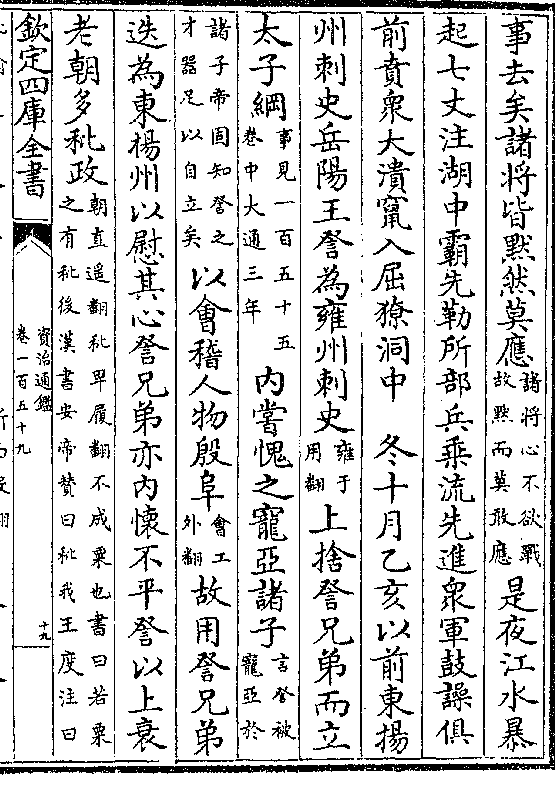 事去矣諸將皆黙然莫應諸將心不欲戰故黙而莫敢應是夜江水暴
起七丈注湖中霸先勒所部兵乗流先進衆軍鼓譟俱
前賁衆大潰竄入屈獠洞中　冬十月乙亥以前東揚
州刺史岳陽王詧為雍州刺史雍于用翻上捨詧兄弟而立
太子綱事見一百五十五卷中大通三年内嘗愧之寵亞諸子言詧被寵亞於
諸子帝固知詧之才器足以自立矣以會稽人物殷阜會工外翻故用詧兄弟
迭為東揚州以慰其心詧兄弟亦内懷不平詧以上衰
老朝多秕政朝直遥翻秕卑履翻不成粟也書曰若粟之有秕後漢書安帝贊曰秕我王度注曰
欽定四庫全書
資治通鑑
卷一百五十九
十九